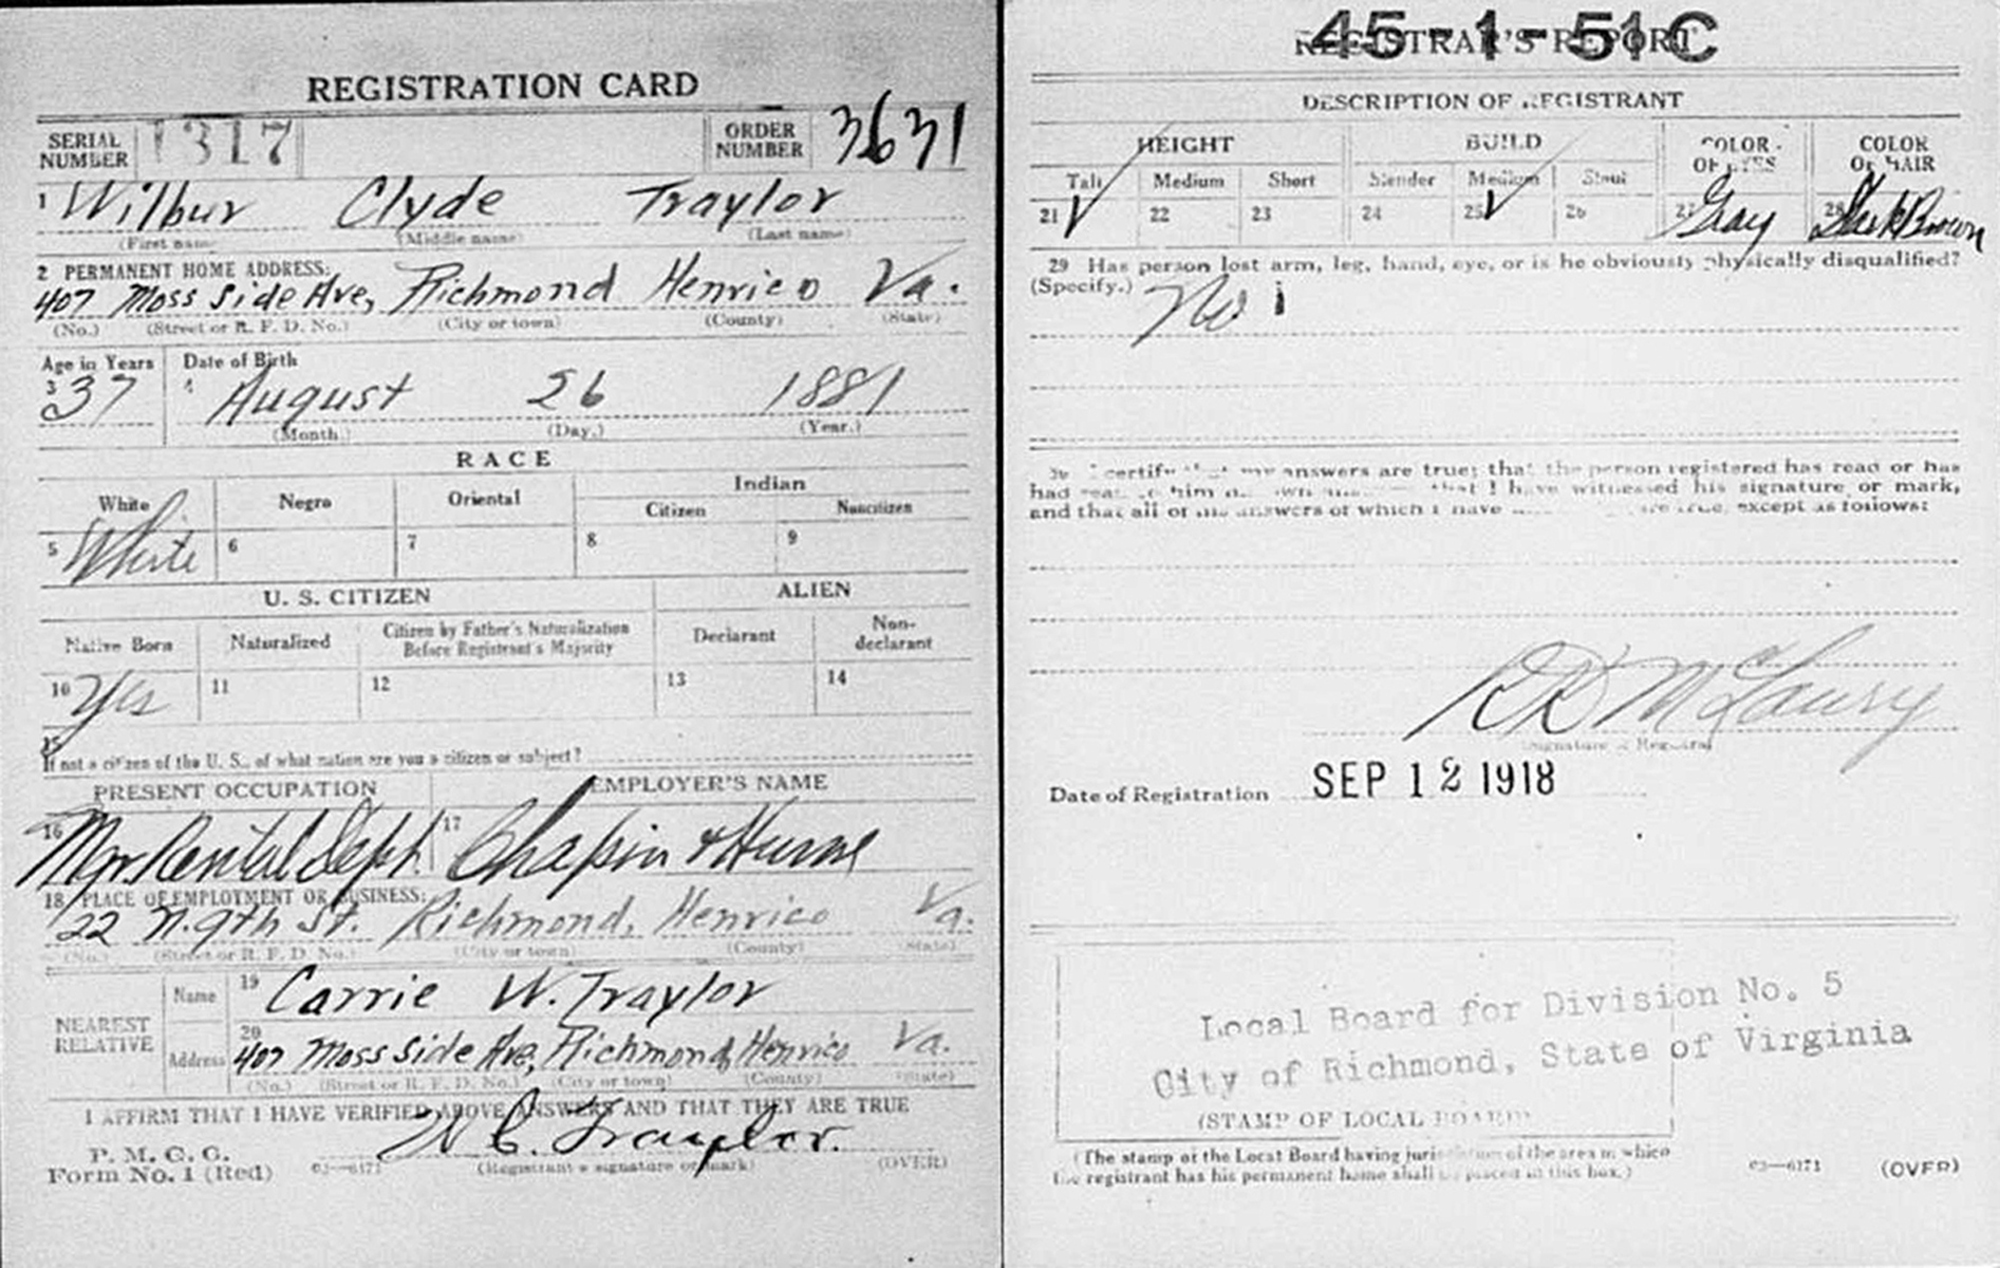 REGISTRATION CARD
SERIAL NUMBER 1317 ORDER NUMBER 3631
1 Wilbur Clyde Traylor
(First name) (Middle name) (Last name)
2 PERMANENT HOME ADDRESS:
407 Moss Side Ave, Richmond Henrico Va.
(No.) (Street or R. F. D. No.) (City or town) (County) (State)
Age in Years Date of Birth
3 37 4 August 26 1881
(Month) (Day.) (Year.)
RACE
White Negro Oriental Indian
Citizen Noncitizen
5 White 6 7 8 9
U. S. CITIZEN ALIEN
Native Born Naturalized Citizen by Father's Naturalization Before Registrant's Majority Declarant Non-declarant
10 Yes 11 12 13 14
15
If not a citizen of the U. S., of what nation are you a citizen or subject?
PRESENT OCCUPATION EMPLOYER'S NAME
16 Mgr. Rental Dept. 17 Chapin & Hume
18 PLACE OF EMPLOYMENT OR BUSINESS:
22 N. 9th St. Richmond, Henrico Va.
(No.) (Street or R. F. D. No.) (City or town) (County) (State)
NEAREST RELATIVE
Name 19 Carrie W. Traylor
Address 20 407 Moss Side Ave, Richmond, Henrico Va.
(No.) (Street or R. F. D. No.) (City or town) (County) (State)
I AFFIRM THAT I HAVE VERIFIED ABOVE ANSWERS AND THAT THEY ARE TRUE
W. C. Traylor.
P. M. G. O.
Form No. 1 (Red) 03—6171 (Registrant's signature or mark) (OVER)
45-1-51 C
REGISTRAR'S REPORT
DESCRIPTION OF REGISTRANT
HEIGHT BUILD COLOR OF EYES COLOR OF HAIR
Tall Medium Short Slender Medium Stout
21 ✓ 22 23 24 25 ✓ 26 27 Gray 28 Dark Brown
29 Has person lost arm, leg, hand, eye, or is he obviously physically disqualified?
(Specify.) No
30 I certify that my answers are true; that the person registered has read or has
had read to him his own answers; that I have witnessed his signature or mark,
and that all of his answers of which I have are true, except as follows:
(Signature of Registrar)
Date of Registration SEP 12 1918
Local Board for Division No. 5
City of Richmond, State of Virginia
(STAMP OF LOCAL BOARD)
(The stamp of the Local Board having jurisdiction of the area in which
the registrant has his permanent home shall be placed in this box.)
03—6171 (OVER)